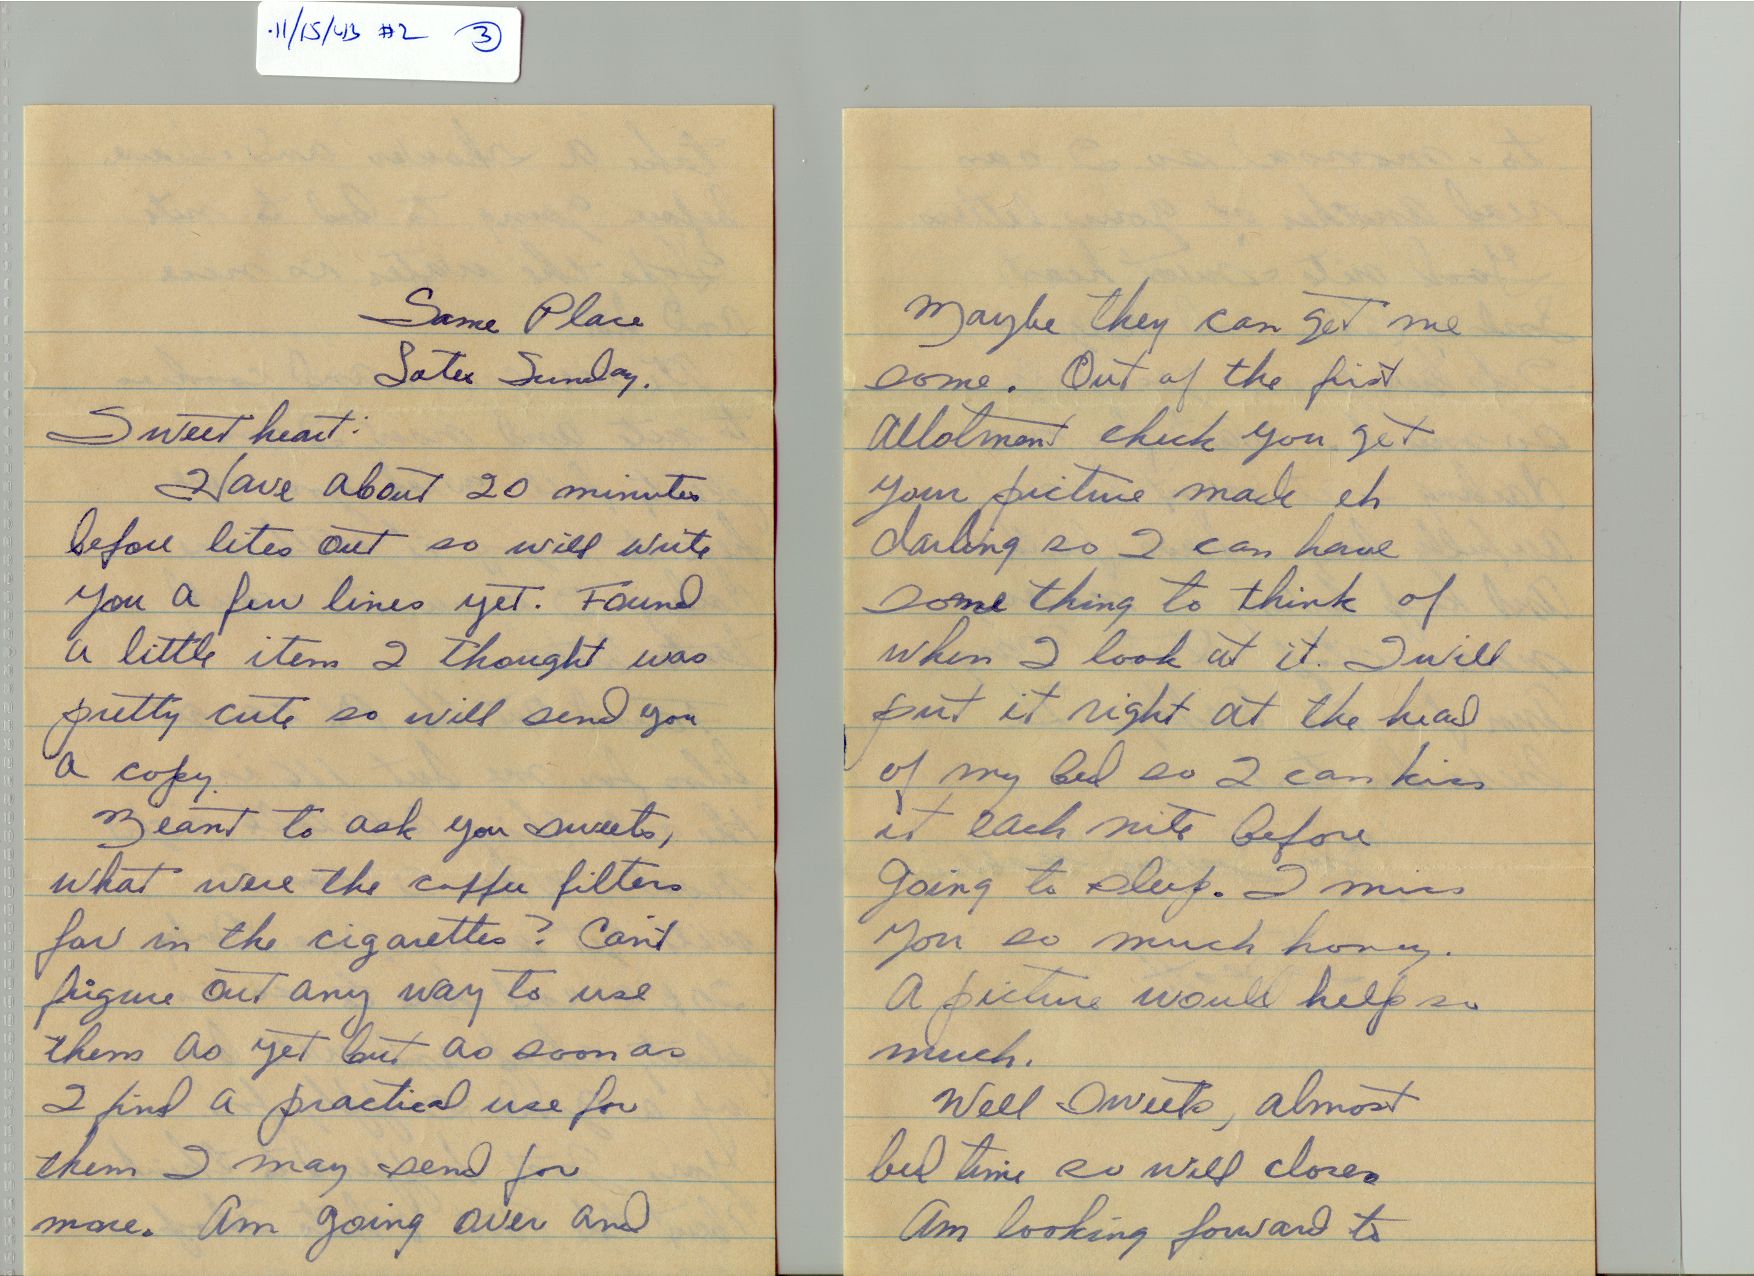 11/15/43 #2 3
Same Place
Later Sunday.
Sweet heart:
Have about 20 minutes
before lites out so will write
you a few lines yet. Found
a little item I thought was
pretty cute so will send you
a copy.
Meant to ask you sweets,
what were the coffee filters
for in the cigarettes? Can't
figure out any way to use
them as yet but as soon as
I find a practical use for
them I may send for
more. Am going over and
Maybe they can get me
some. Out of the first
allotment check you get
your picture made eh
darling so I can have
some thing to think of
when I look at it. I will
put it right at the head
of my bed so I can kiss
it each nite before
going to sleep. I miss
you so much honey.
A picture would help so
much.
Well sweets, almost
bed time so will close.
Am looking forward to